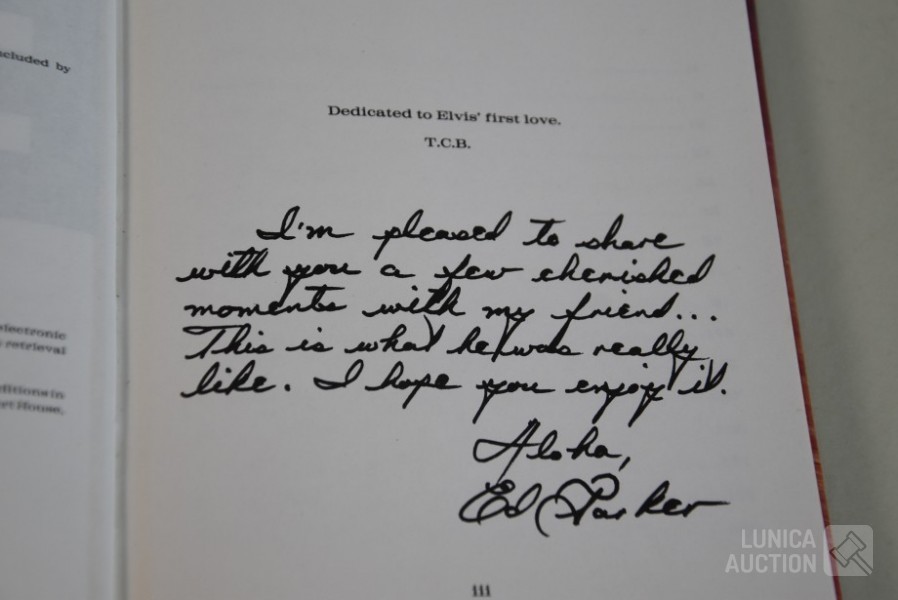 included by
electronic
retrieval
editions in
Dedicated to Elvis' first love.
T.C.B.
I'm pleased to share
with you a few cherished
moments with my friend...
This is what he was really
like. I hope you enjoy it.
Aloha,
Ed Parker
iii
LUNICA
AUCTION